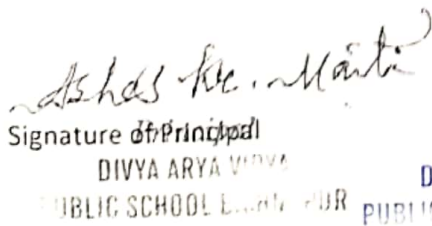 Ashos Kr. Maiti
Signature of Principal
DIVYA ARYA VIDYA
PUBLIC SCHOOL
PUBLI